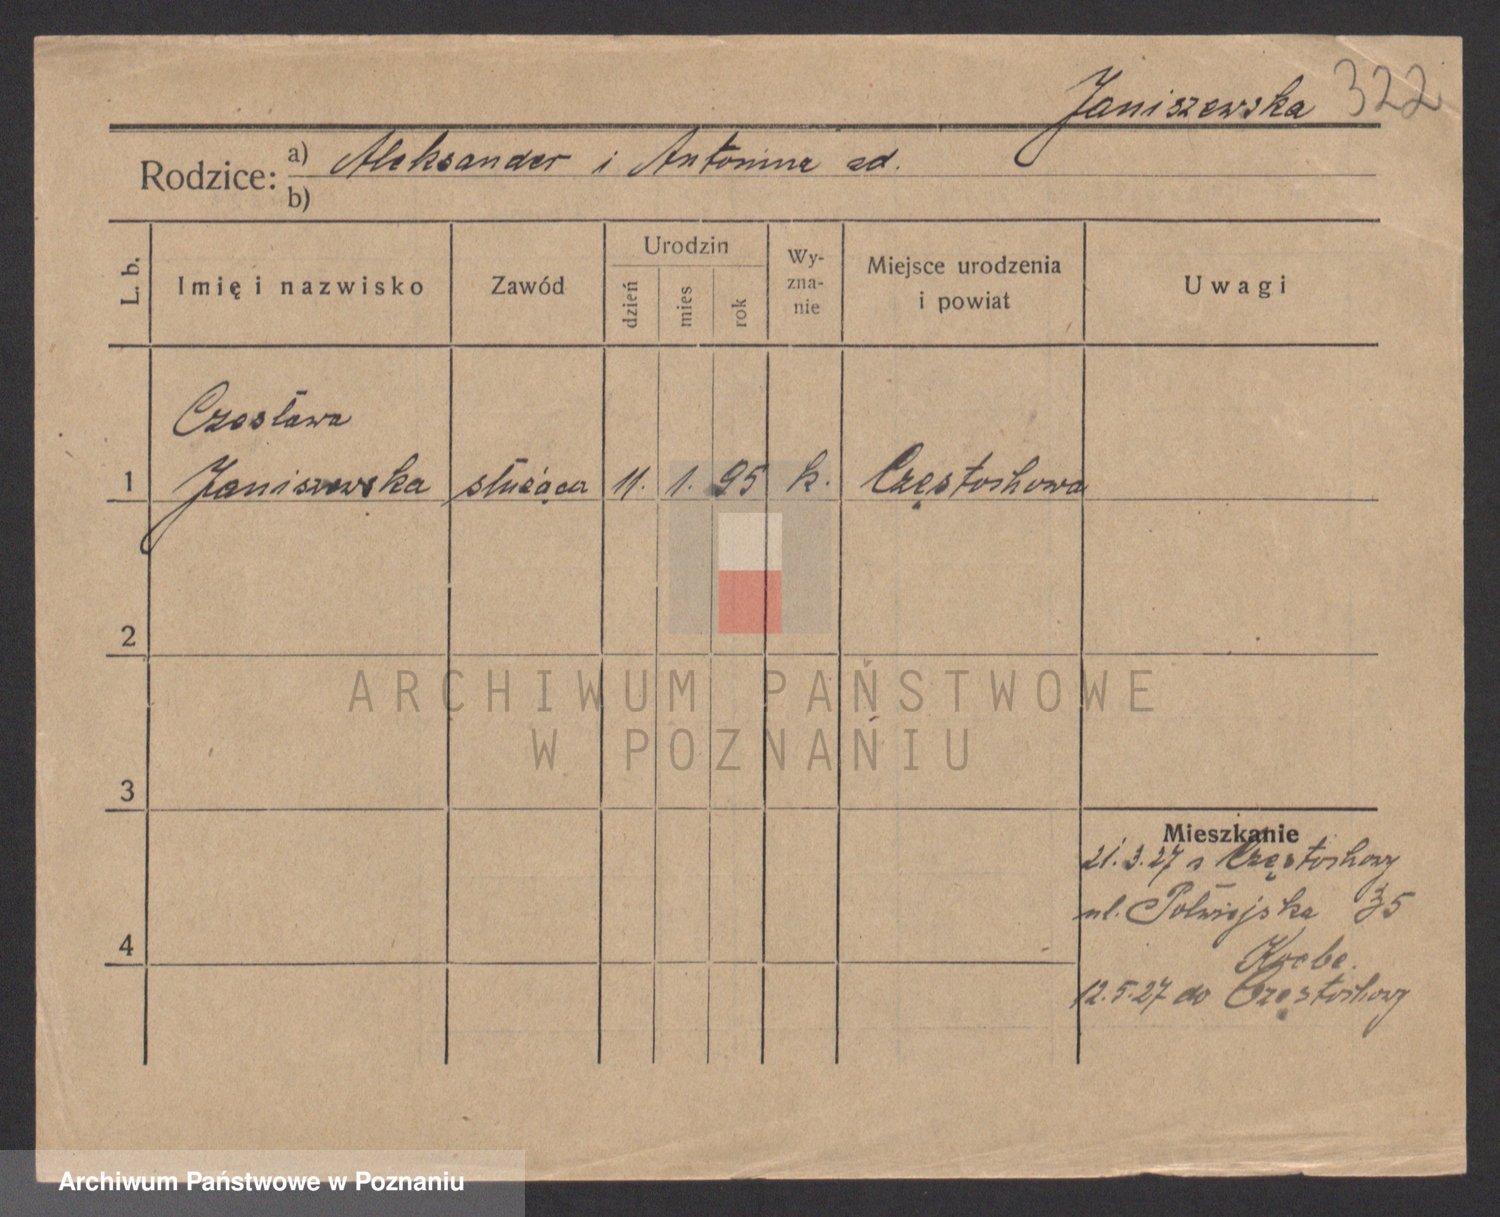 Janiszewska 322
Rodzice: a) Aleksander i Antonina zd.
b)
L. b. Imię i nazwisko Zawód Urodzin dzień mies rok Wyznanie Miejsce urodzenia i powiat Uwagi
Czesława
1 Janiszewska służąca 11. 1. 95 k. Częstochowa
2
ARCHIWUM PAŃSTWOWE
W POZNANIU
3
Mieszkanie
21.3.27 z Częstochowy
ul. Półwiejska 35
4
12.5.27 do Częstochowy
Archiwum Państwowe w Poznaniu